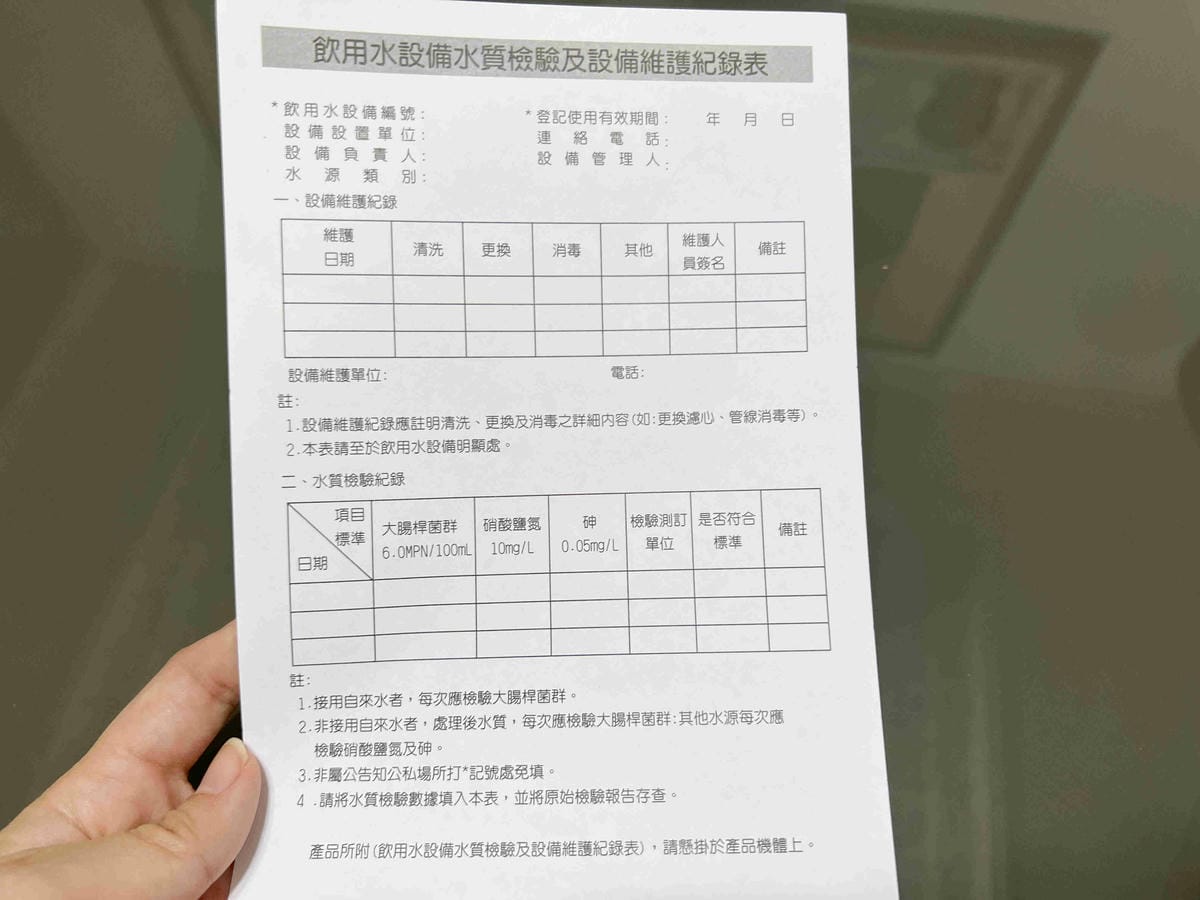 飲用水設備水質檢驗及設備維護紀錄表
*飲用水設備編號:
*登記使用有效期間: 年 月 日
設備設置單位:
連絡電話:
設備負責人:
設備管理人:
水源類別:
一、設備維護紀錄
維護日期 清洗 更換 消毒 其他 維護人員簽名 備註
設備維護單位: 電話:
註:
1.設備維護紀錄應註明清洗、更換及消毒之詳細內容(如:更換濾心、管線消毒等)。
2.本表請至於飲用水設備明顯處。
二、水質檢驗紀錄
項目 標準 日期 大腸桿菌群 6.0MPN/100mL 硝酸鹽氮 10mg/L 砷 0.05mg/L 檢驗測訂單位 是否符合標準 備註
註:
1.接用自來水者，每次應檢驗大腸桿菌群。
2.非接用自來水者，處理後水質，每次應檢驗大腸桿菌群:其他水源每次應
檢驗硝酸鹽氮及砷。
3.非屬公告知公私場所打*記號處免填。
4.請將水質檢驗數據填入本表，並將原始檢驗報告存查。
產品所附(飲用水設備水質檢驗及設備維護紀錄表)，請懸掛於產品機體上。